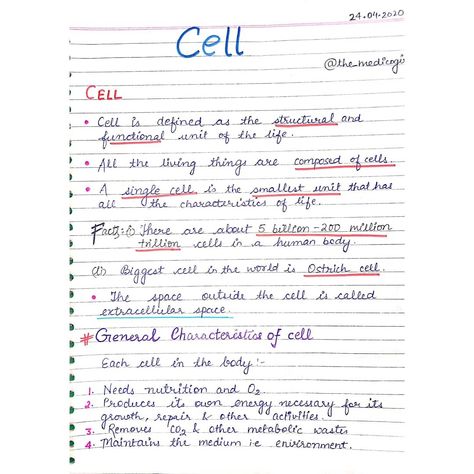 24.04.2020
Cell
@the_medicogi
CELL
• Cell is defined as the structural and
functional unit of the life.
• All the living things are composed of cells.
• A single cell is the smallest unit that has
all the characteristics of life.
Facts:- i) There are about 5 billion-200 million
trillion cells in a human body.
(ii) Biggest cell in the world is Ostrich cell.
• The space outside the cell is called
extracellular space.
# General Characteristics of cell
Each cell in the body :-
1. Needs nutrition and O2.
2. Produces its own energy necessary for its
growth, repair & other activities.
3. Removes CO2 & other metabolic wastes
4. Maintains the medium i.e environment.